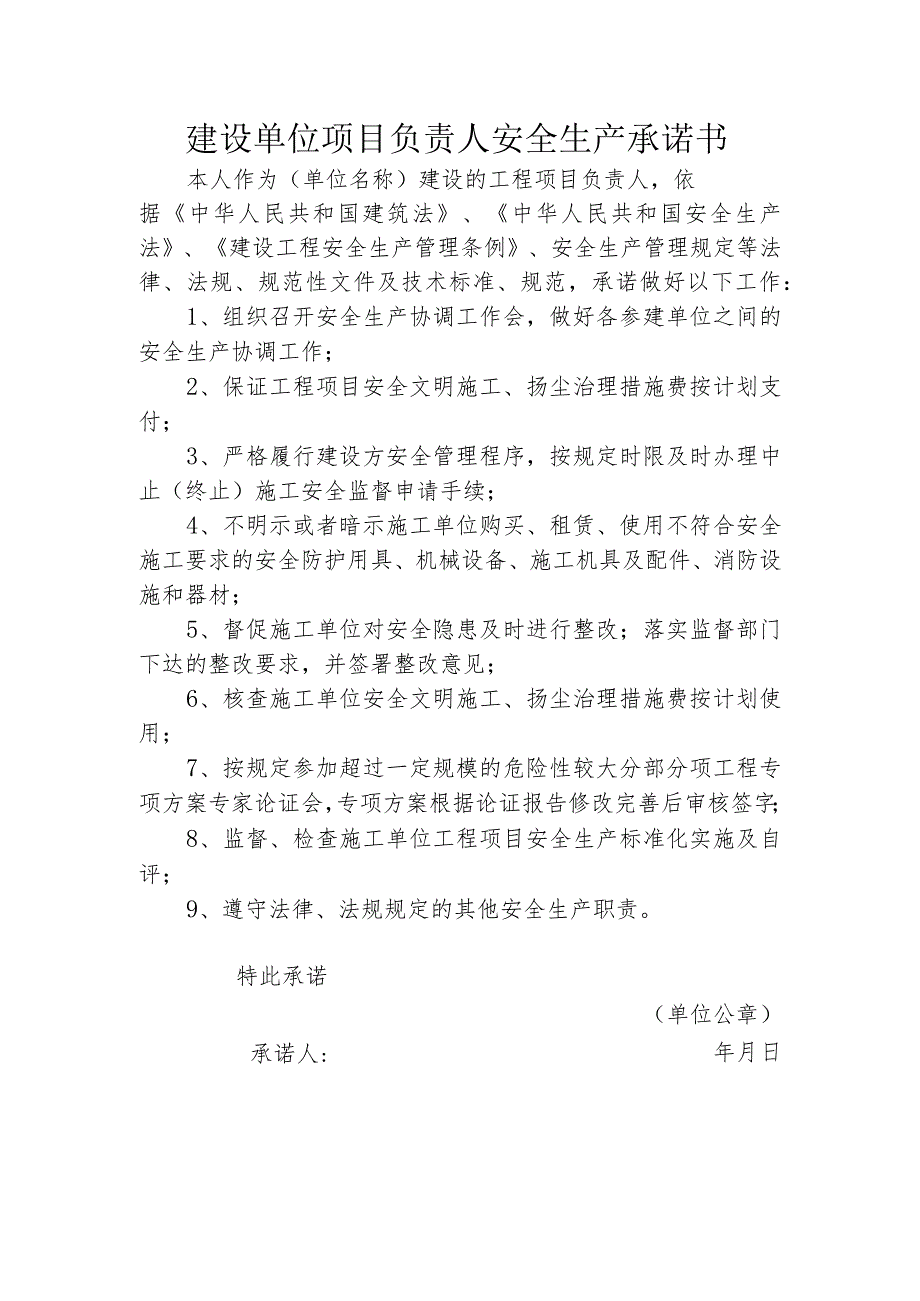 建设单位项目负责人安全生产承诺书
本人作为（单位名称）建设的工程项目负责人，依
据《中华人民共和国建筑法》、《中华人民共和国安全生产
法》、《建设工程安全生产管理条例》、安全生产管理规定等法
律、法规、规范性文件及技术标准、规范，承诺做好以下工作：
1、组织召开安全生产协调工作会，做好各参建单位之间的
安全生产协调工作；
2、保证工程项目安全文明施工、扬尘治理措施费按计划支
付；
3、严格履行建设方安全管理程序，按规定时限及时办理中
止（终止）施工安全监督申请手续；
4、不明示或者暗示施工单位购买、租赁、使用不符合安全
施工要求的安全防护用具、机械设备、施工机具及配件、消防设
施和器材；
5、督促施工单位对安全隐患及时进行整改；落实监督部门
下达的整改要求，并签署整改意见；
6、核查施工单位安全文明施工、扬尘治理措施费按计划使
用；
7、按规定参加超过一定规模的危险性较大分部分项工程专
项方案专家论证会，专项方案根据论证报告修改完善后审核签字；
8、监督、检查施工单位工程项目安全生产标准化实施及自
评；
9、遵守法律、法规规定的其他安全生产职责。
特此承诺
（单位公章）
承诺人： 年月日